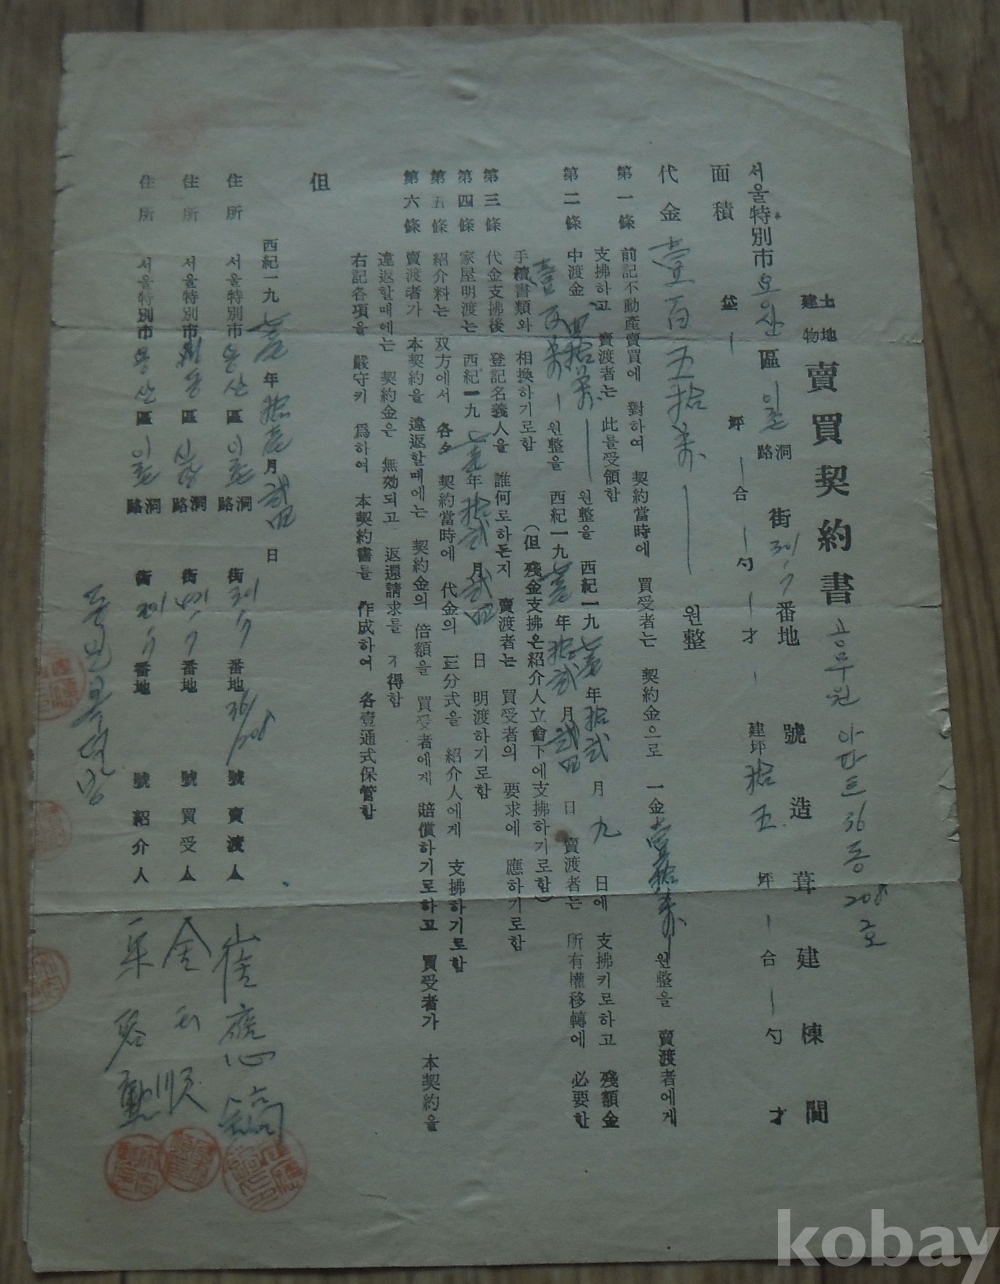 土地建物 賣買契約書 공무원 아파트 36동 208호
서울特別市 용산區 이촌洞路 街 番地 號 造 葺 建 棟 間
面積 垈 坪 合 勺 才 建坪 拾五 坪 合 勺 才
代金 壹百五拾万 원整
第一條 前記不動產賣買에 對하여 契約當時에 買受者는 契約金으로 一金 壹拾万 원整을 賣渡者에게
支拂하고 賣渡者는 此를 受領함
第二條 中渡金 四拾万 원整을 西紀一九 年 拾貳 月 九 日에 支拂키로하고 殘額金
壹百万 원整을 西紀一九 年 拾貳 月 日 賣渡者는 所有權移轉에 必要한
手續書類와 相換하기로함 (但 殘金支拂은 紹介人立會下에 支拂하기로함)
第三條 代金支拂後 登記名義人을 誰何로하든지 賣渡者는 買受者의 要求에 應하기로함
第四條 家屋明渡는 西紀一九 年 拾貳 月 日 明渡하기로함
第五條 紹介料는 双方에서 各々 契約當時에 代金의 三分式을 紹介人에게 支拂하기로함
第六條 賣渡者가 本契約을 違返할때에는 契約金의 倍額을 買受者에게 賠償하기로하고 買受者가 本契約을
違返할때에는 契約金은 無効되고 返還請求를 不得함
右記各項을 嚴守키 爲하여 本契約書를 作成하여 各壹通式保管함
但
西紀一九 年 月 日
住所 서울特別市 용산區 이촌洞路 街 番地 36/208 號 賣渡人 崔應鎬
住所 서울特別市 區 洞路 街 番地 號 買受人 金 順
住所 서울特別市 용산區 이촌洞路 街 番地 號 紹介人
kobay